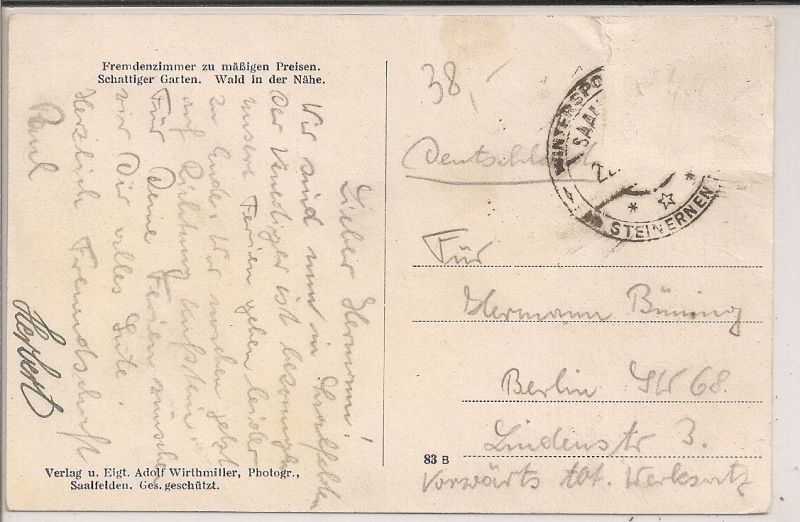 Fremdenzimmer zu mäßigen Preisen.
Schattiger Garten. Wald in der Nähe.
Lieber Hermann!
Wir sind nun in Saalfelden
Der Venediger ist bezwungen
unsere Ferien gehen leider
zu Ende. Wir wandern jetzt
auf Richtung Kufstein.
Für Deine Ferien wünschen
wir Dir alles Gute.
Herzlich Freundschaft
Paul
Herbert
Verlag u. Eigt. Adolf Wirthmiller, Photogr.,
Saalfelden. Ges. geschützt.
38,-
WINTERSPO
SAAL
STEINERNEN
Deutschland
Für
Hermann Büning
Berlin SW 68
Lindenstr 3.
83 B
Vorwärts Abt. Werksatz